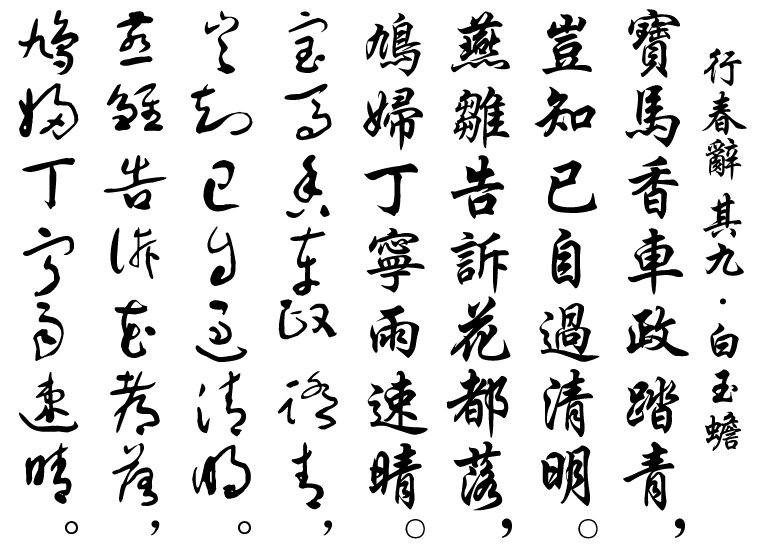 行春辭 其九·白玉蟾
寶馬香車政踏青，
豈知已自過清明。
燕雛告訴花都落，
鳩婦丁寧雨速晴。
寶馬香車政踏青，
豈知已自過清明。
燕雛告訴花都落，
鳩婦丁寧雨速晴。